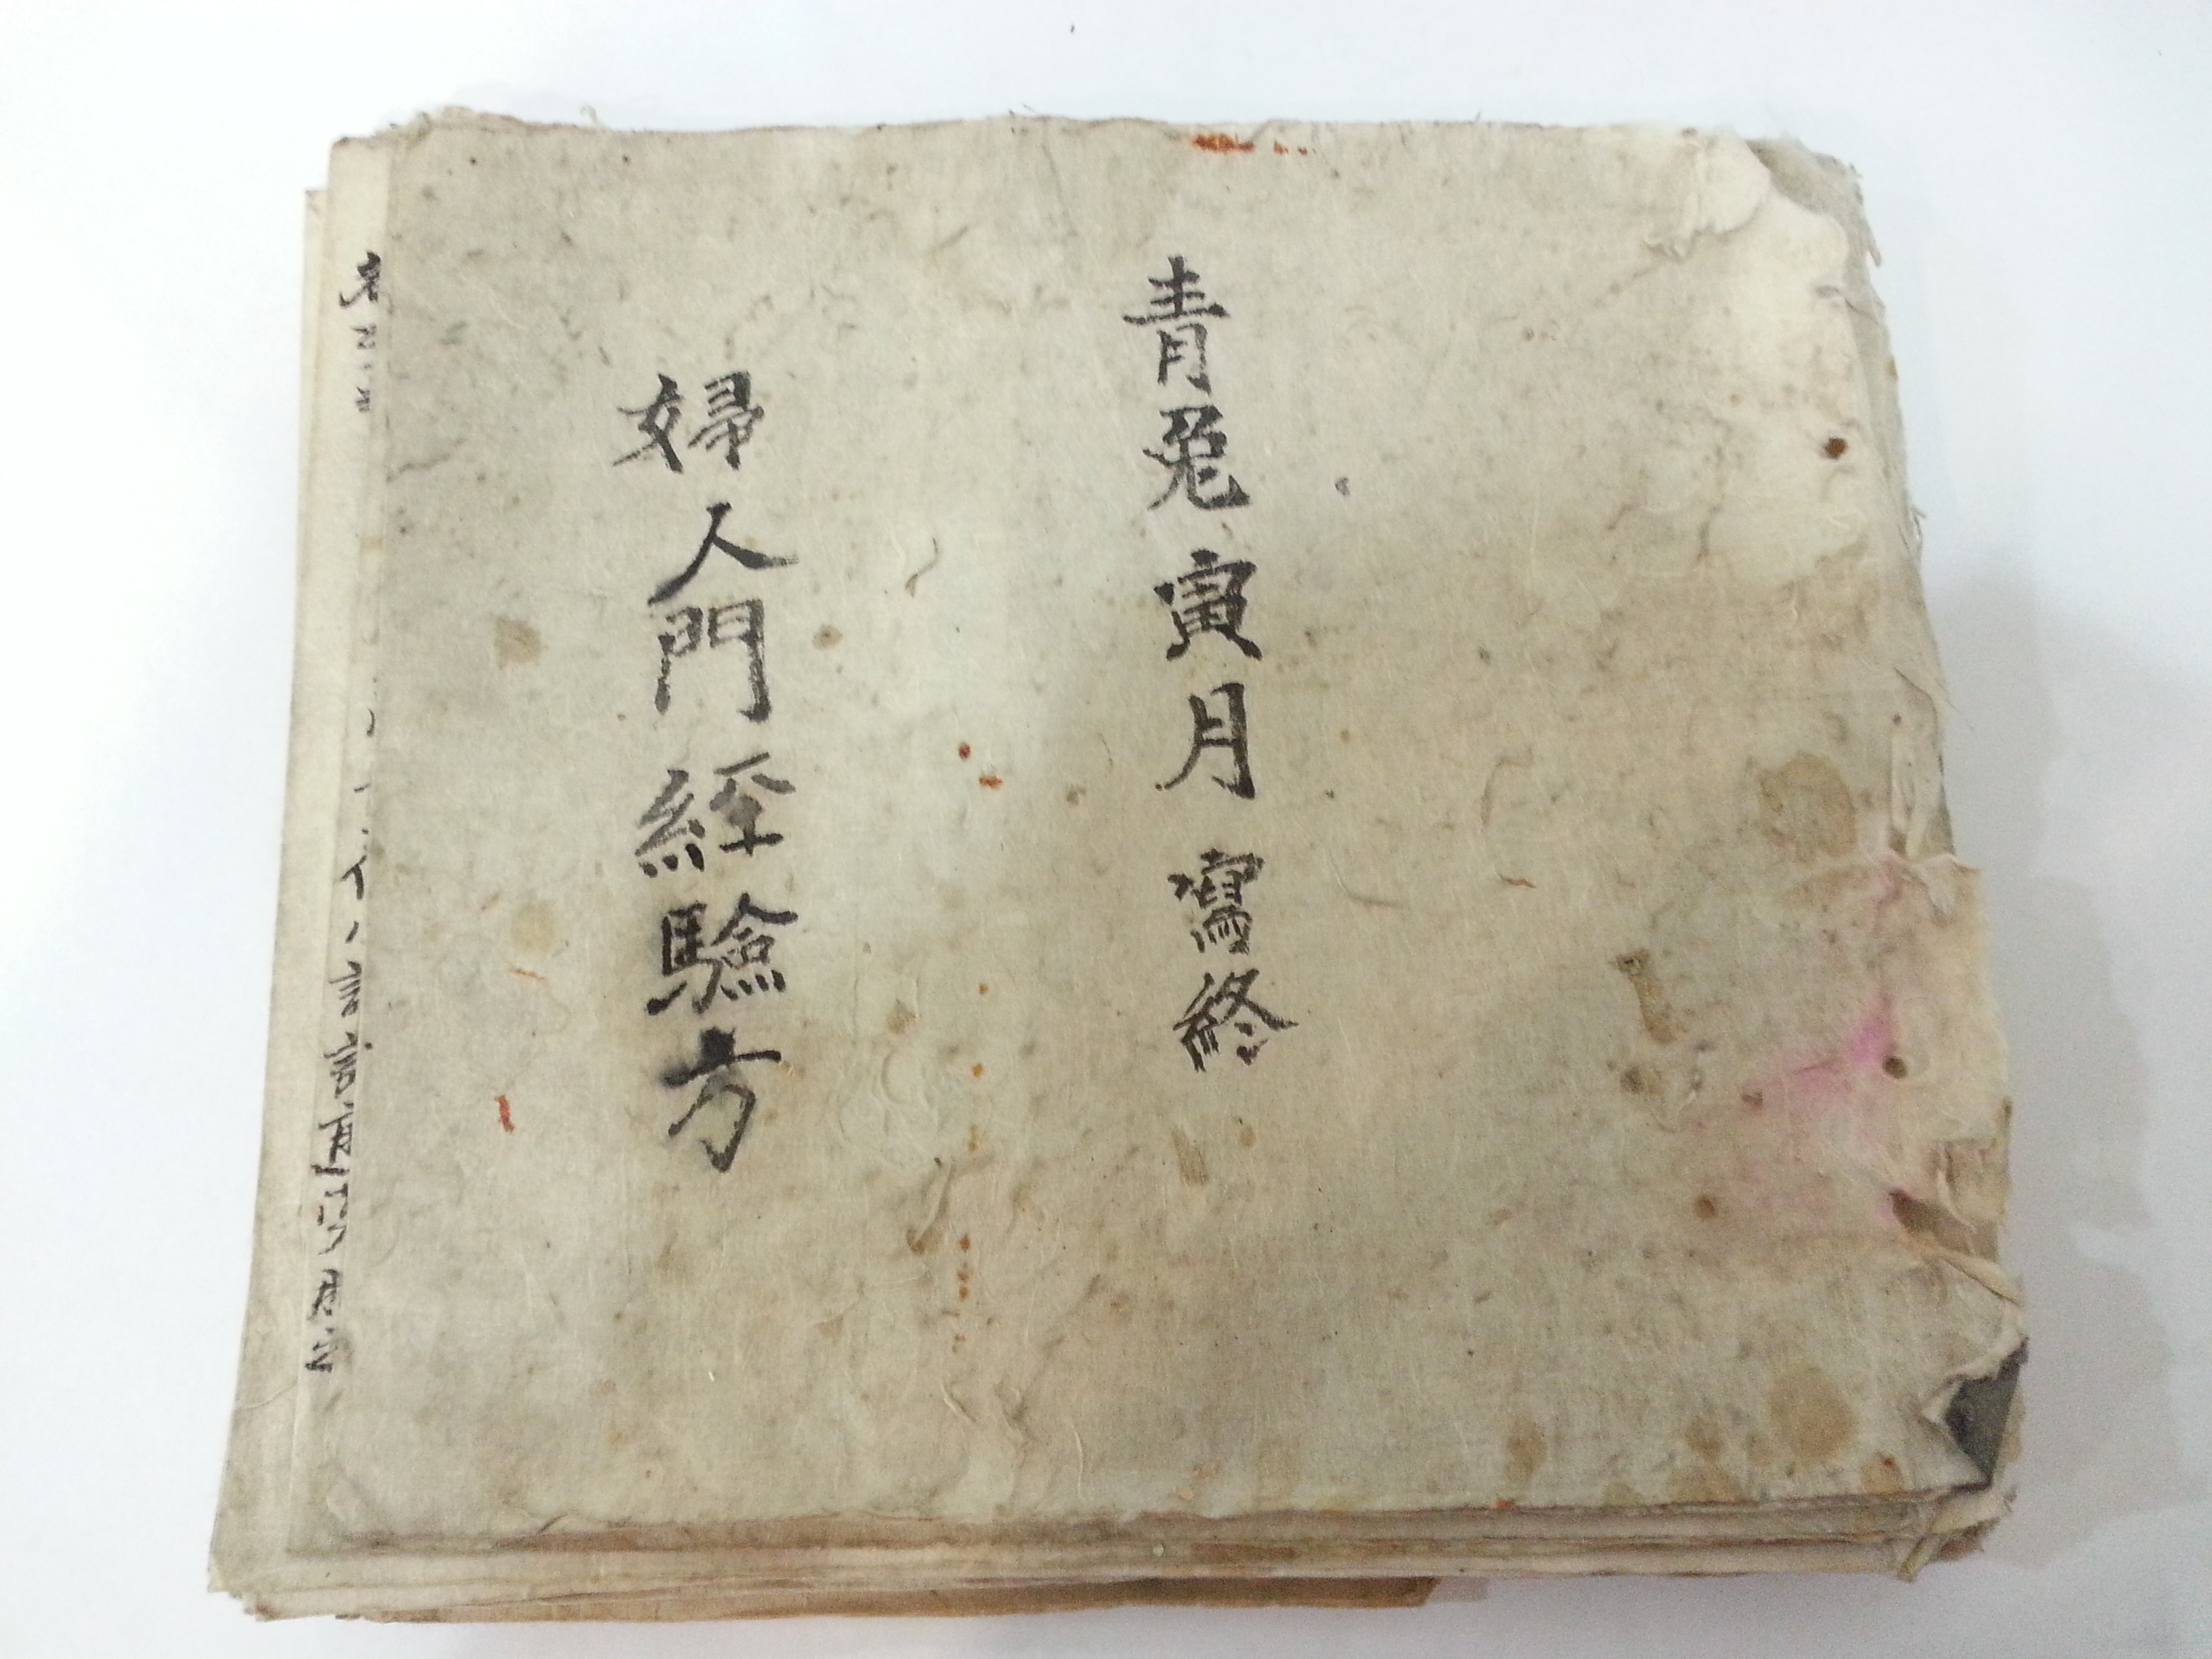 青兎寅月寫終
婦人門經驗方